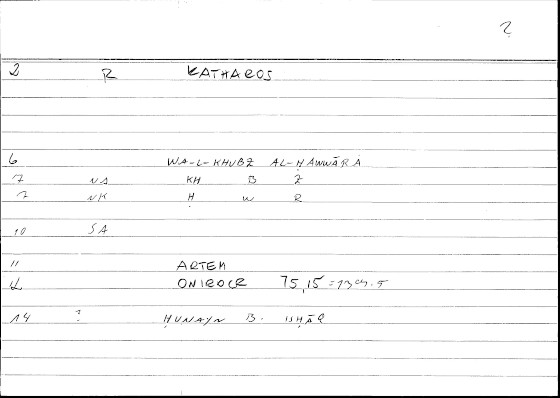 ?
2 R KATHAROS
6 WA-L-KHUBZ AL-ḤAWWĀRĀ
7 NA KH B Z
7 NK Ḥ W R
10 SA
11 ARTEM
12 ONIROCR 75,15 =
14 ? ḤUNAYN B. ISḤĀQ